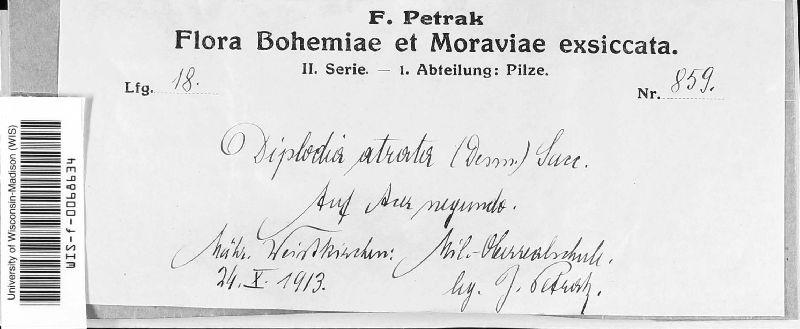 F. Petrak
Flora Bohemiae et Moraviae exsiccata.
II. Serie. — 1. Abteilung: Pilze.
Lfg. 18.
Nr. 859.
Diplodia atrata (Desm.) Sacc.
Auf Acer negundo.
Mähr. Weisskirchen: Mil.-Oberrealschule.
24. X. 1913.
leg. J. Petrak.
University of Wisconsin-Madison (WIS)
WIS-f-0068634